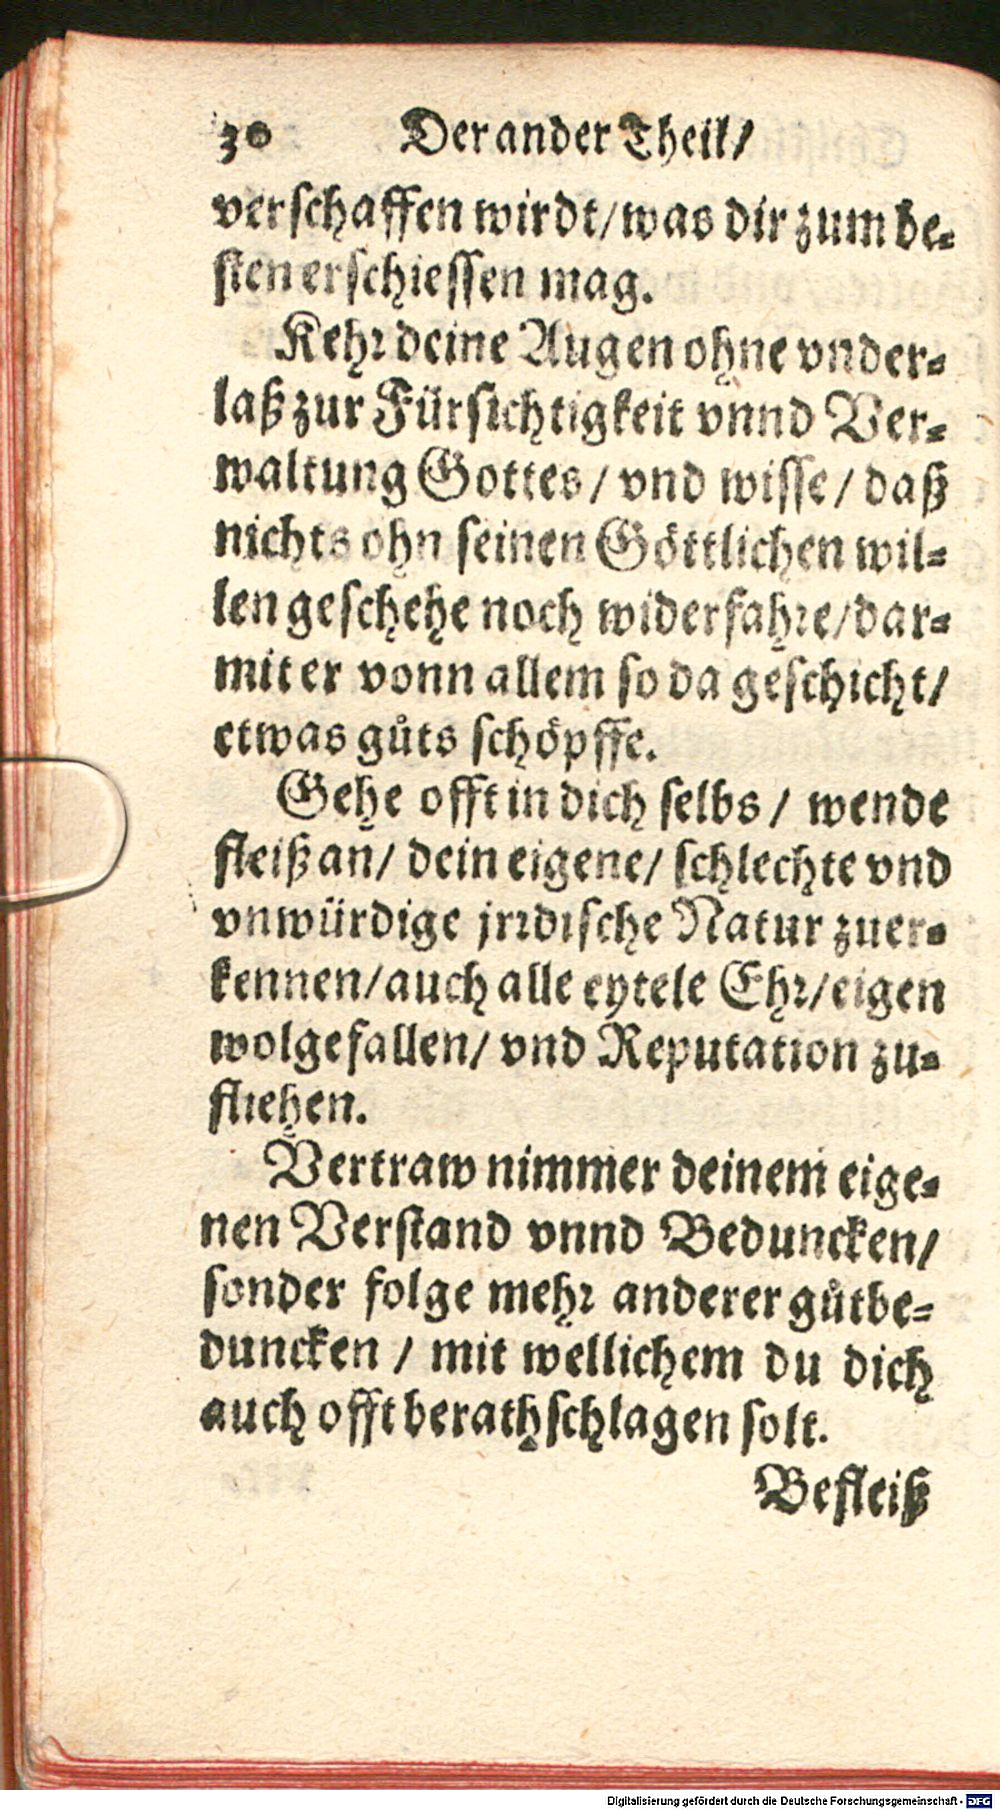 30 Der ander Theil/
verschaffen wirdt/was dir zum be-
sten erschiessen mag.
Kehr deine Augen ohne vnder-
laß zur Fürsichtigkeit vnnd Ver-
waltung Gottes/ vnd wisse/ daß
nichts ohn seinen Göttlichen wil-
len geschehe noch widerfahre/dar-
mit er vonn allem so da geschicht/
etwas gůts schöpffe.
Gehe offt in dich selbs/ wende
fleiß an/ dein eigene/ schlechte vnd
vnwürdige jrrdische Natur zuer-
kennen/auch alle eytele Ehr/eigen
wolgefallen/ vnd Reputation zu-
fliehen.
Vertraw nimmer deinem eige-
nen Verstand vnnd Beduncken/
sonder folge mehr anderer gůtbe-
duncken/ mit wellichem du dich
auch offt berathschlagen solt.
Befleiß
Digitalisierung gefördert durch die Deutsche Forschungsgemeinschaft - DFG